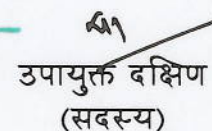 उपायुक्त दक्षिण
(सदस्य)